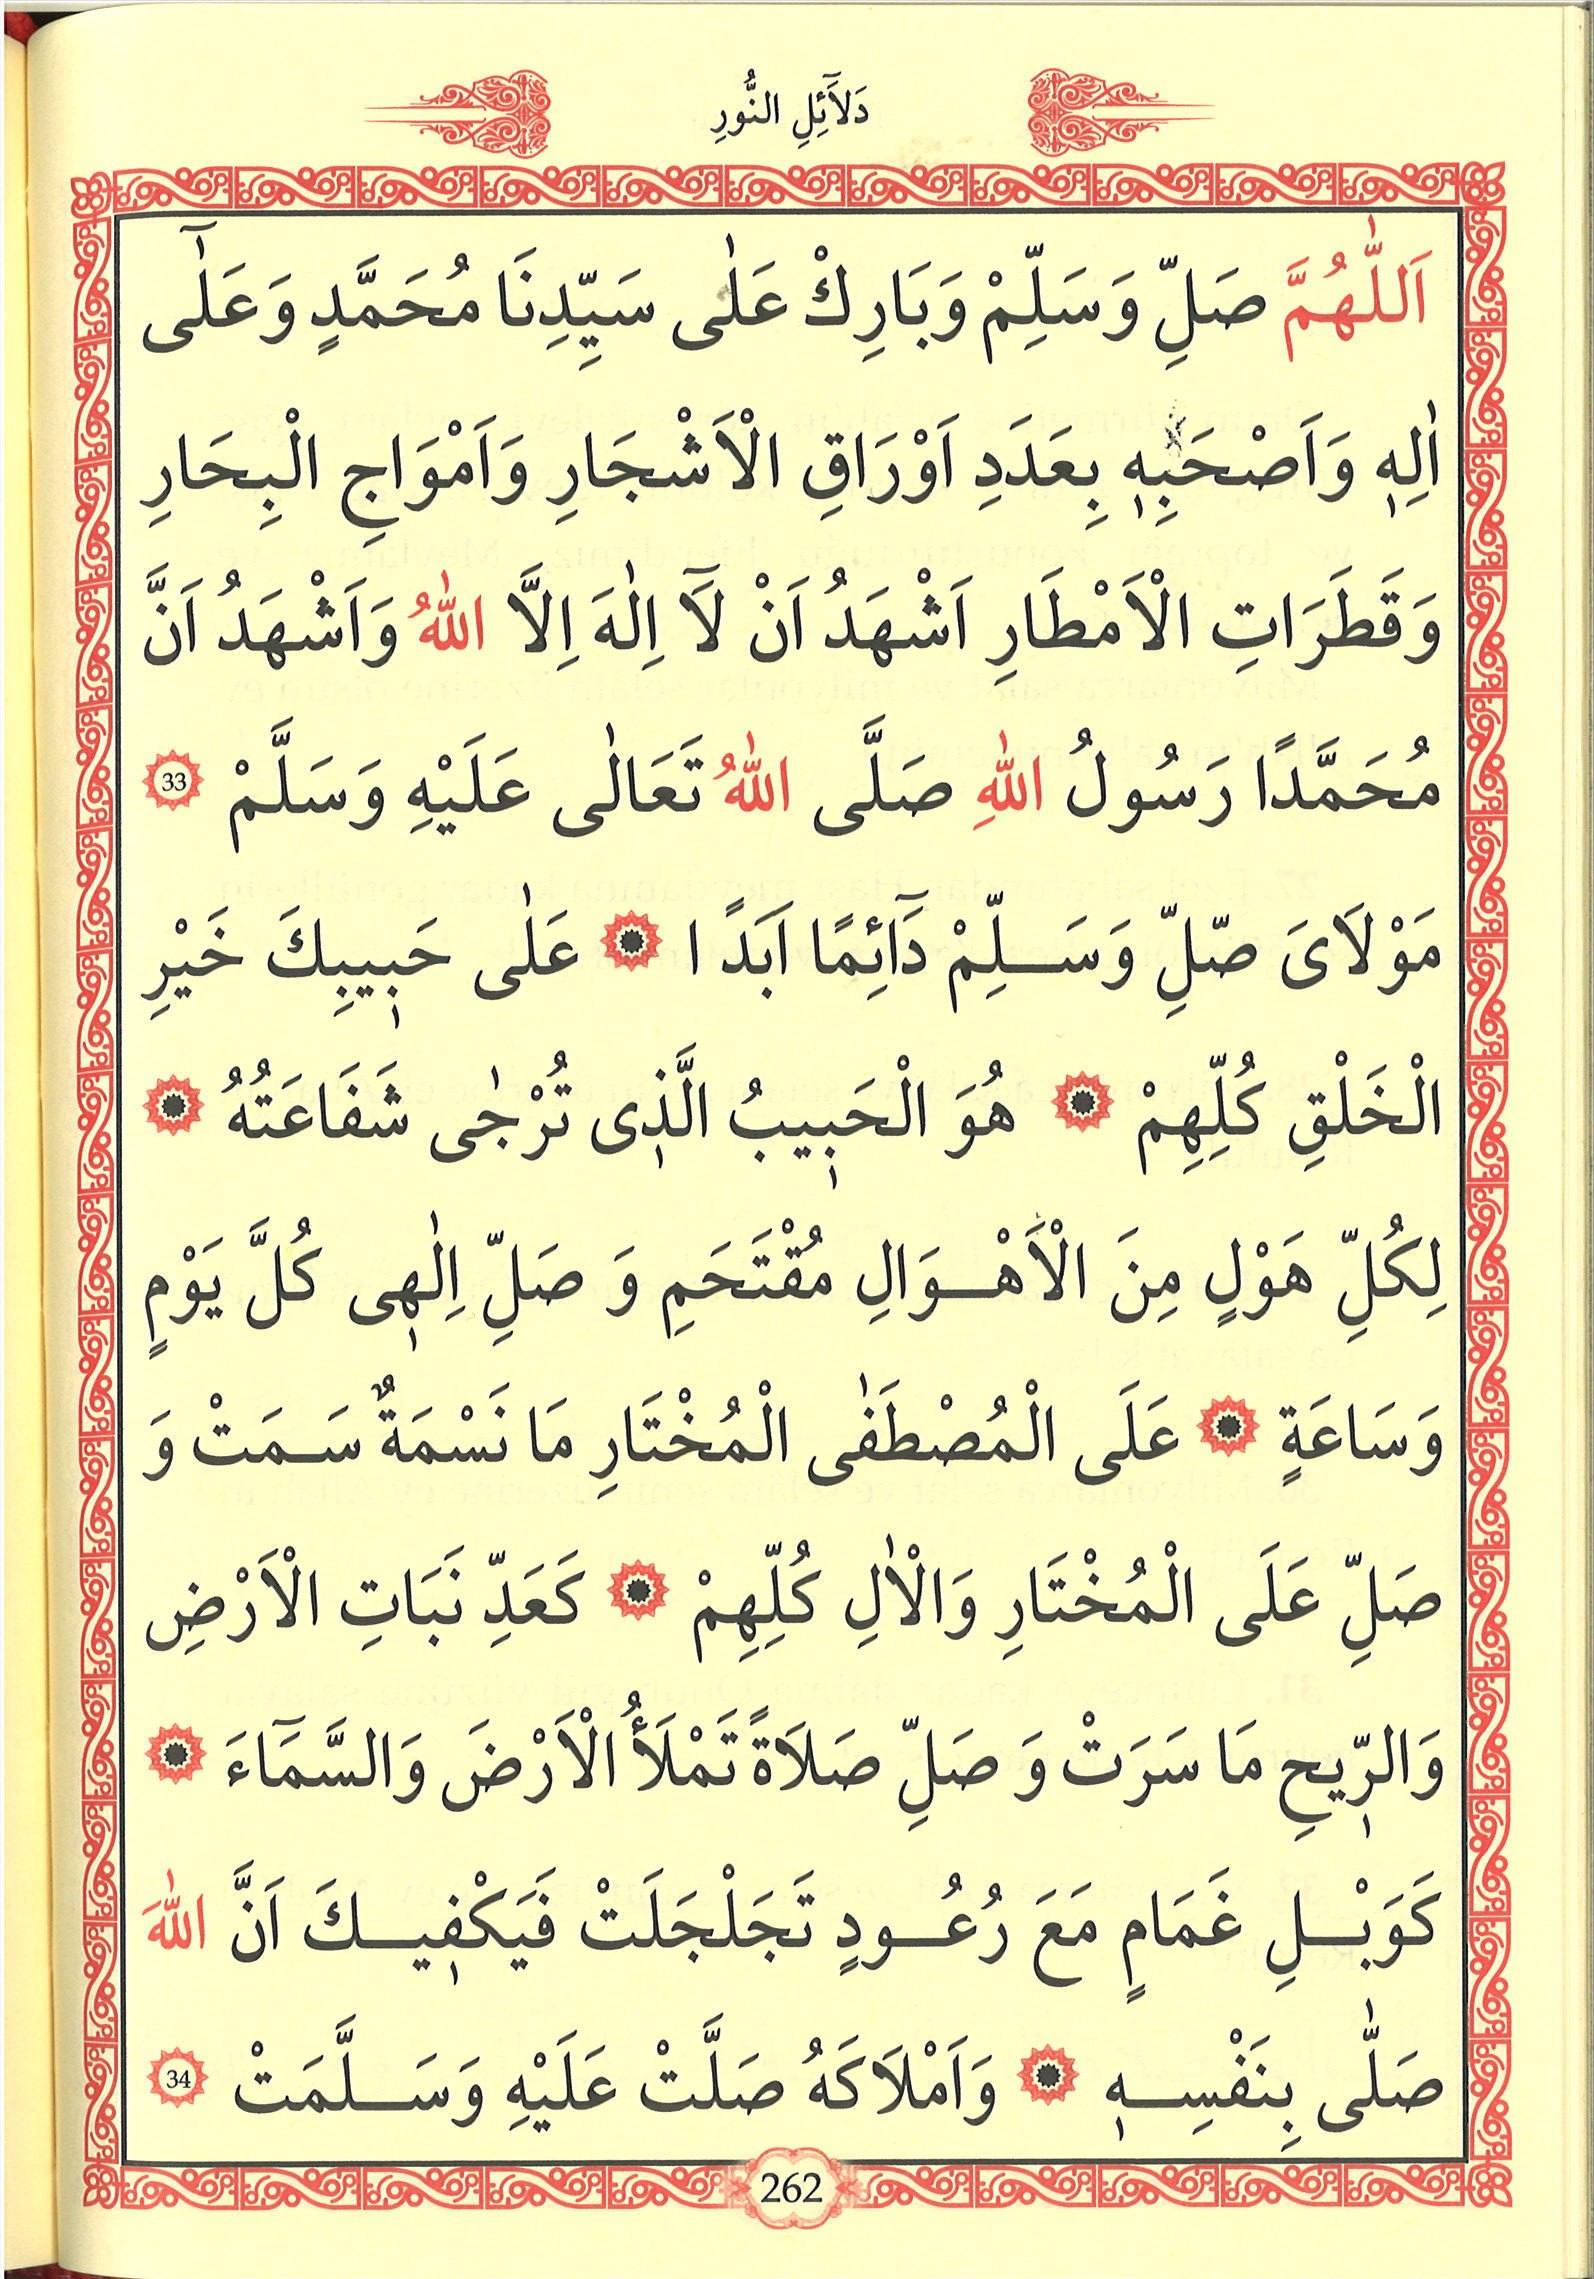 دَلَآئِلِ النُّورِ
اَللّٰهُمَّ صَلِّ وَسَلِّمْ وَبَارِكْ عَلٰى سَيِّدِنَا مُحَمَّدٍ وَعَلٰٓى
اٰلِهٖ وَاَصْحَبِهٖ بِعَدَدِ اَوْرَاقِ الْاَشْجَارِ وَاَمْوَاجِ الْبِحَارِ
وَقَطَرَاتِ الْاَمْطَارِ اَشْهَدُ اَنْ لَٓا اِلٰهَ اِلَّا اللّٰهُ وَاَشْهَدُ اَنَّ
مُحَمَّدًا رَسُولُ اللّٰهِ صَلَّى اللّٰهُ تَعَالٰى عَلَيْهِ وَسَلَّمْ 33
مَوْلَاىَ صّلِّ وَسَلِّمْ دَٓائِمًا اَبَدًا ۞ عَلٰى حَبٖيبِكَ خَيْرِ
الْخَلْقِ كُلِّهِمْ ۞ هُوَ الْحَبٖيبُ الَّذٖى تُرْجٰى شَفَاعَتُهُ ۞
لِكُلِّ هَوْلٍ مِنَ الْاَهْوَالِ مُقْتَحَمِ وَ صَلِّ اِلٰهٖى كُلَّ يَوْمٍ
وَسَاعَةٍ ۞ عَلَى الْمُصْطَفٰى الْمُخْتَارِ مَا نَسْمَةٌ سَمَتْ وَ
صَلِّ عَلَى الْمُخْتَارِ وَالْاٰلِ كُلِّهِمْ ۞ كَعَدِّ نَبَاتِ الْاَرْضِ
وَالرّٖيحِ مَا سَرَتْ وَ صَلِّ صَلَاةً تَمْلَأُ الْاَرْضَ وَالسَّمَٓاءَ ۞
كَوَبْلِ غَمَامٍ مَعَ رُعُودٍ تَجَلْجَلَتْ فَيَكْفٖيكَ اَنَّ اللّٰهَ
صَلّٰى بِنَفْسِهٖ ۞ وَاَمْلَاكَهُ صَلَّتْ عَلَيْهِ وَسَلَّمَتْ 34
262